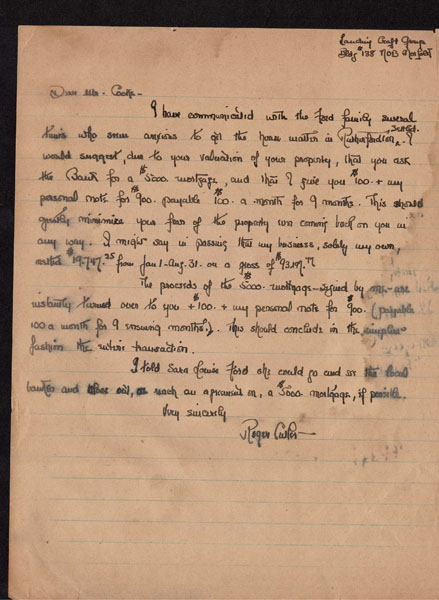 Landing Craft Group
Bldg #138 NOB Norfolk
Dear Mr. Cooke -
I have communicated with the Ford family several
times who seem anxious to get the house matter in Rutherfordton settled. I
would suggest, due to your valuation of your property, that you ask
the Bank for a $5000. mortgage, and that I give you $100. + my
personal note for 900. payable $100. a month for 9 months. This should
greatly minimize your fear of the property ever coming back on you in
any way. I might say in passing that my business, solely my own,
$19,747.35 from Jan 1 - Aug. 31. on a gross of
The proceeds of the $5000. mortgage - signed by me - are
instantly turned over to you + $100. + my personal note for $900. (payable
100 a month for 9 ensuing months). This should conclude in the simplest
fashion the entire transaction.
I told Sara Louise Ford she could go and see the local
banker and reach an agreement on, a $5000. mortgage, if possible.
Very sincerely
Roger